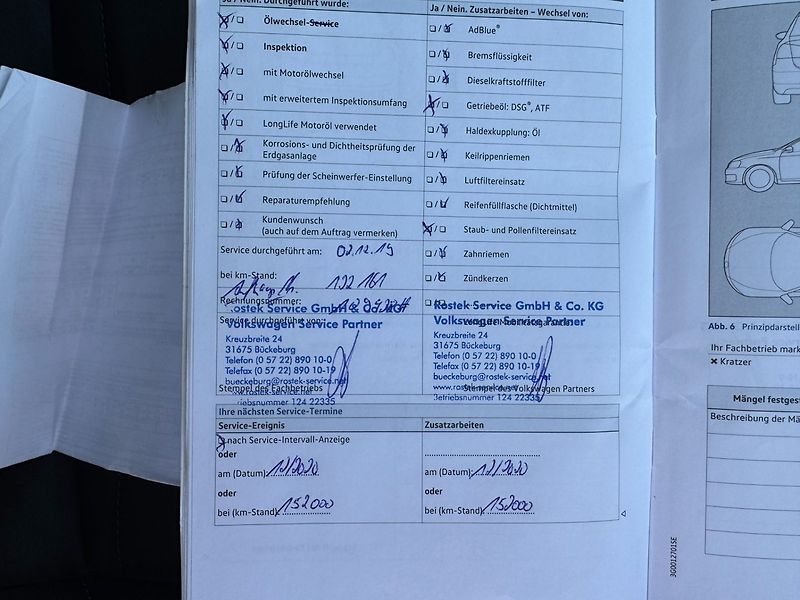 Ja / Nein. Durchgeführt wurde:
Ölwechsel-Service
Inspektion
mit Motorölwechsel
mit erweitertem Inspektionsumfang
LongLife Motoröl verwendet
Korrosions- und Dichtheitsprüfung der
Erdgasanlage
Prüfung der Scheinwerfer-Einstellung
Reparaturempfehlung
Kundenwunsch
(auch auf dem Auftrag vermerken)
Service durchgeführt am: 02.12.19
bei km-Stand: 122 161
Rechnungsnummer:
Service durchgeführt von:
Rostek Service GmbH & Co. KG
Volkswagen Service Partner
Kreuzbreite 24
31675 Bückeburg
Telefon (0 57 22) 890 10-0
Telefax (0 57 22) 890 10-19
bueckeburg@rostek-service.net
www.rostek-service.net
Stempel des Fachbetriebs
Betriebsnummer 124 22335
Ja / Nein. Zusatzarbeiten – Wechsel von:
AdBlue®
Bremsflüssigkeit
Dieselkraftstofffilter
Getriebeöl: DSG®, ATF
Haldexkupplung: Öl
Keilrippenriemen
Luftfiltereinsatz
Reifenfüllflasche (Dichtmittel)
Staub- und Pollenfiltereinsatz
Zahnriemen
Zündkerzen
Rostek Service GmbH & Co. KG
Volkswagen Service Partner
Kreuzbreite 24
31675 Bückeburg
Telefon (0 57 22) 890 10-0
Telefax (0 57 22) 890 10-19
bueckeburg@rostek-service.net
Stempel des Volkswagen Partners
Betriebsnummer 124 22335
Ihre nächsten Service-Termine
Service-Ereignis
nach Service-Intervall-Anzeige
oder
am (Datum): 12/2020
oder
bei (km-Stand): 152000
Zusatzarbeiten
am (Datum): 12/2020
oder
bei (km-Stand): 152000
Abb. 6 Prinzipdarstell
Ihr Fachbetrieb mark
Kratzer
Mängel festgest
Beschreibung der Mä
3G0012701SE